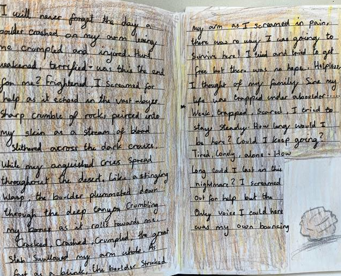 I will never forget the day a
bolder crashed on my arm leaving
me crumpled and injured. Hurt
weakened, terrified - was this the end
for me? Frightened I screamed for
help as it echoed in the vast
sharp crumble of rocks pierced into
my skin as a stream of blood
slithered across the dark crevice.
While my anguished cries spread
throughout the desert like a stinging
wasp the bolder plummeted down
through the deep canyon crumbling
my bones as it roll towards me.
Crashed, crumpled the great
slab swallowed my arm whole
fast as a blink the bolder
my arm as I screamed in pain.
there was no way I was going to
survive here! I tried and tried to get
free but there was no hope. Helpless
I thought of my family. Since my
life was trapped under a boulder
weak, trapped, scared! I tried to
stay steady. How long would I
be here? Could I keep going?
Tired, lonely, alone - How
long could I last in this
nightmare? I screamed
out for help but the
only voice I could hear
was my own bouncing